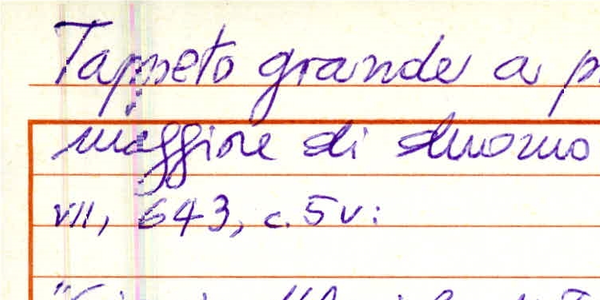 Tappeto grande a p
maggiore di duomo
VII, 643, c. 5v: